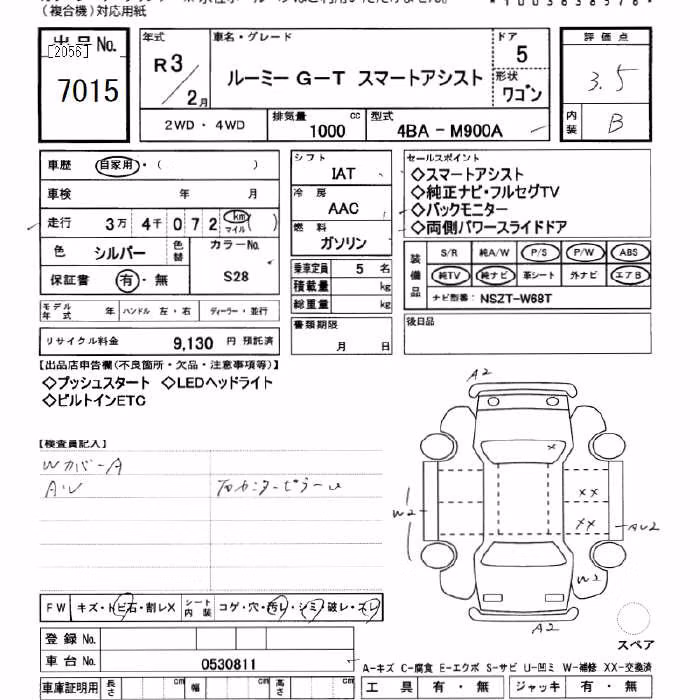 (複合機)対応用紙
出品No.
[2056]
7015
年式
R3/2月
車名・グレード
ルーミー G-T スマートアシスト
ドア
5
形状
ワゴン
評価点
3.5
内装
B
2WD・4WD
排気量 cc
1000
型式
4BA-M900A
車歴 自家用・( )
車検 年 月
走行 3万 4千 0 7 2 km マイル ( )
色 シルバー 色替
カラーNo.
S28
保証書 有・無
シフト
IAT
冷房
AAC
燃料
ガソリン
乗車定員 5 名
積載量 kg
総重量 kg
セールスポイント
◇スマートアシスト
◇純正ナビ・フルセグTV
◇バックモニター
◇両側パワースライドドア
装備品
S/R 純A/W P/S P/W ABS
純TV 純ナビ 革シート 外ナビ エアB
ナビ型番: NSZT-W68T
モデル年式 年 ハンドル 左・右 ディーラー・並行
リサイクル料金 9,130 円 預託済
書類期限
月 日
後日品
【出品店申告欄(不良箇所・欠品・注意事項等)】
◇プッシュスタート ◇LEDヘッドライト
◇ビルトインETC
【検査員記入】
Wカバ-A
A・U
A2
W2
AU2
W3
A2
XX
XX
X
FW キズ・トビ石・割レX
シート内装 コゲ・穴・汚レ・シミ・破レ・スレ
スペア
登録No.
車台No. 0530811
A-キズ C-腐食 E-エクボ S-サビ U-凹ミ W-補修 XX-交換済
車庫証明用 長さ cm 幅 cm 高さ cm
工具 有・無 ジャッキ 有・無